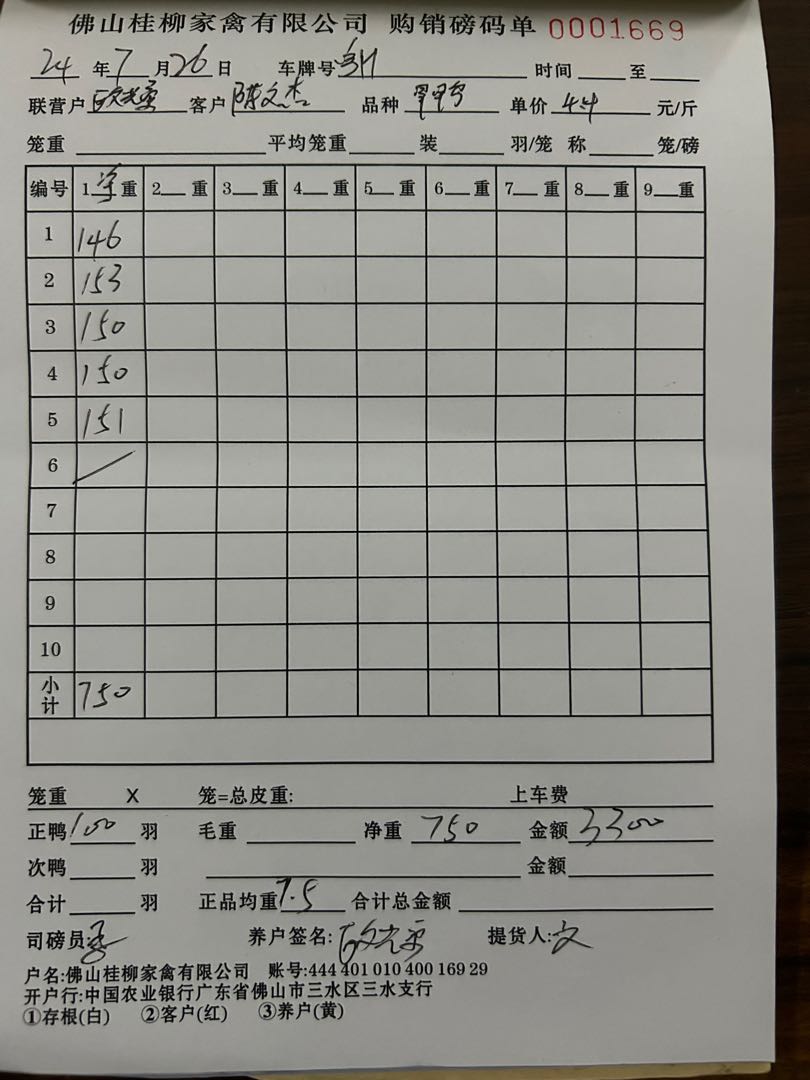 佛山桂柳家禽有限公司 购销磅码单 0001669
24 年 7 月 26 日 车牌号 时间 至
联营户 客户 陈文杰 品种 单价 4.4 元/斤
笼重 平均笼重 装 羽/笼 称 笼/磅
编号 1 净 重 2 重 3 重 4 重 5 重 6 重 7 重 8 重 9 重
1 146
2 153
3 150
4 150
5 151
6
7
8
9
10
小计 750
笼重 X 笼=总皮重: 上车费
正鸭 100 羽 毛重 净重 750 金额 3300
次鸭 羽 金额
合计 羽 正品均重 7.5 合计总金额
司磅员: 养户签名: 提货人: 文
户名:佛山桂柳家禽有限公司 账号:444 401 010 400 169 29
开户行:中国农业银行广东省佛山市三水区三水支行
①存根(白) ②客户(红) ③养户(黄)